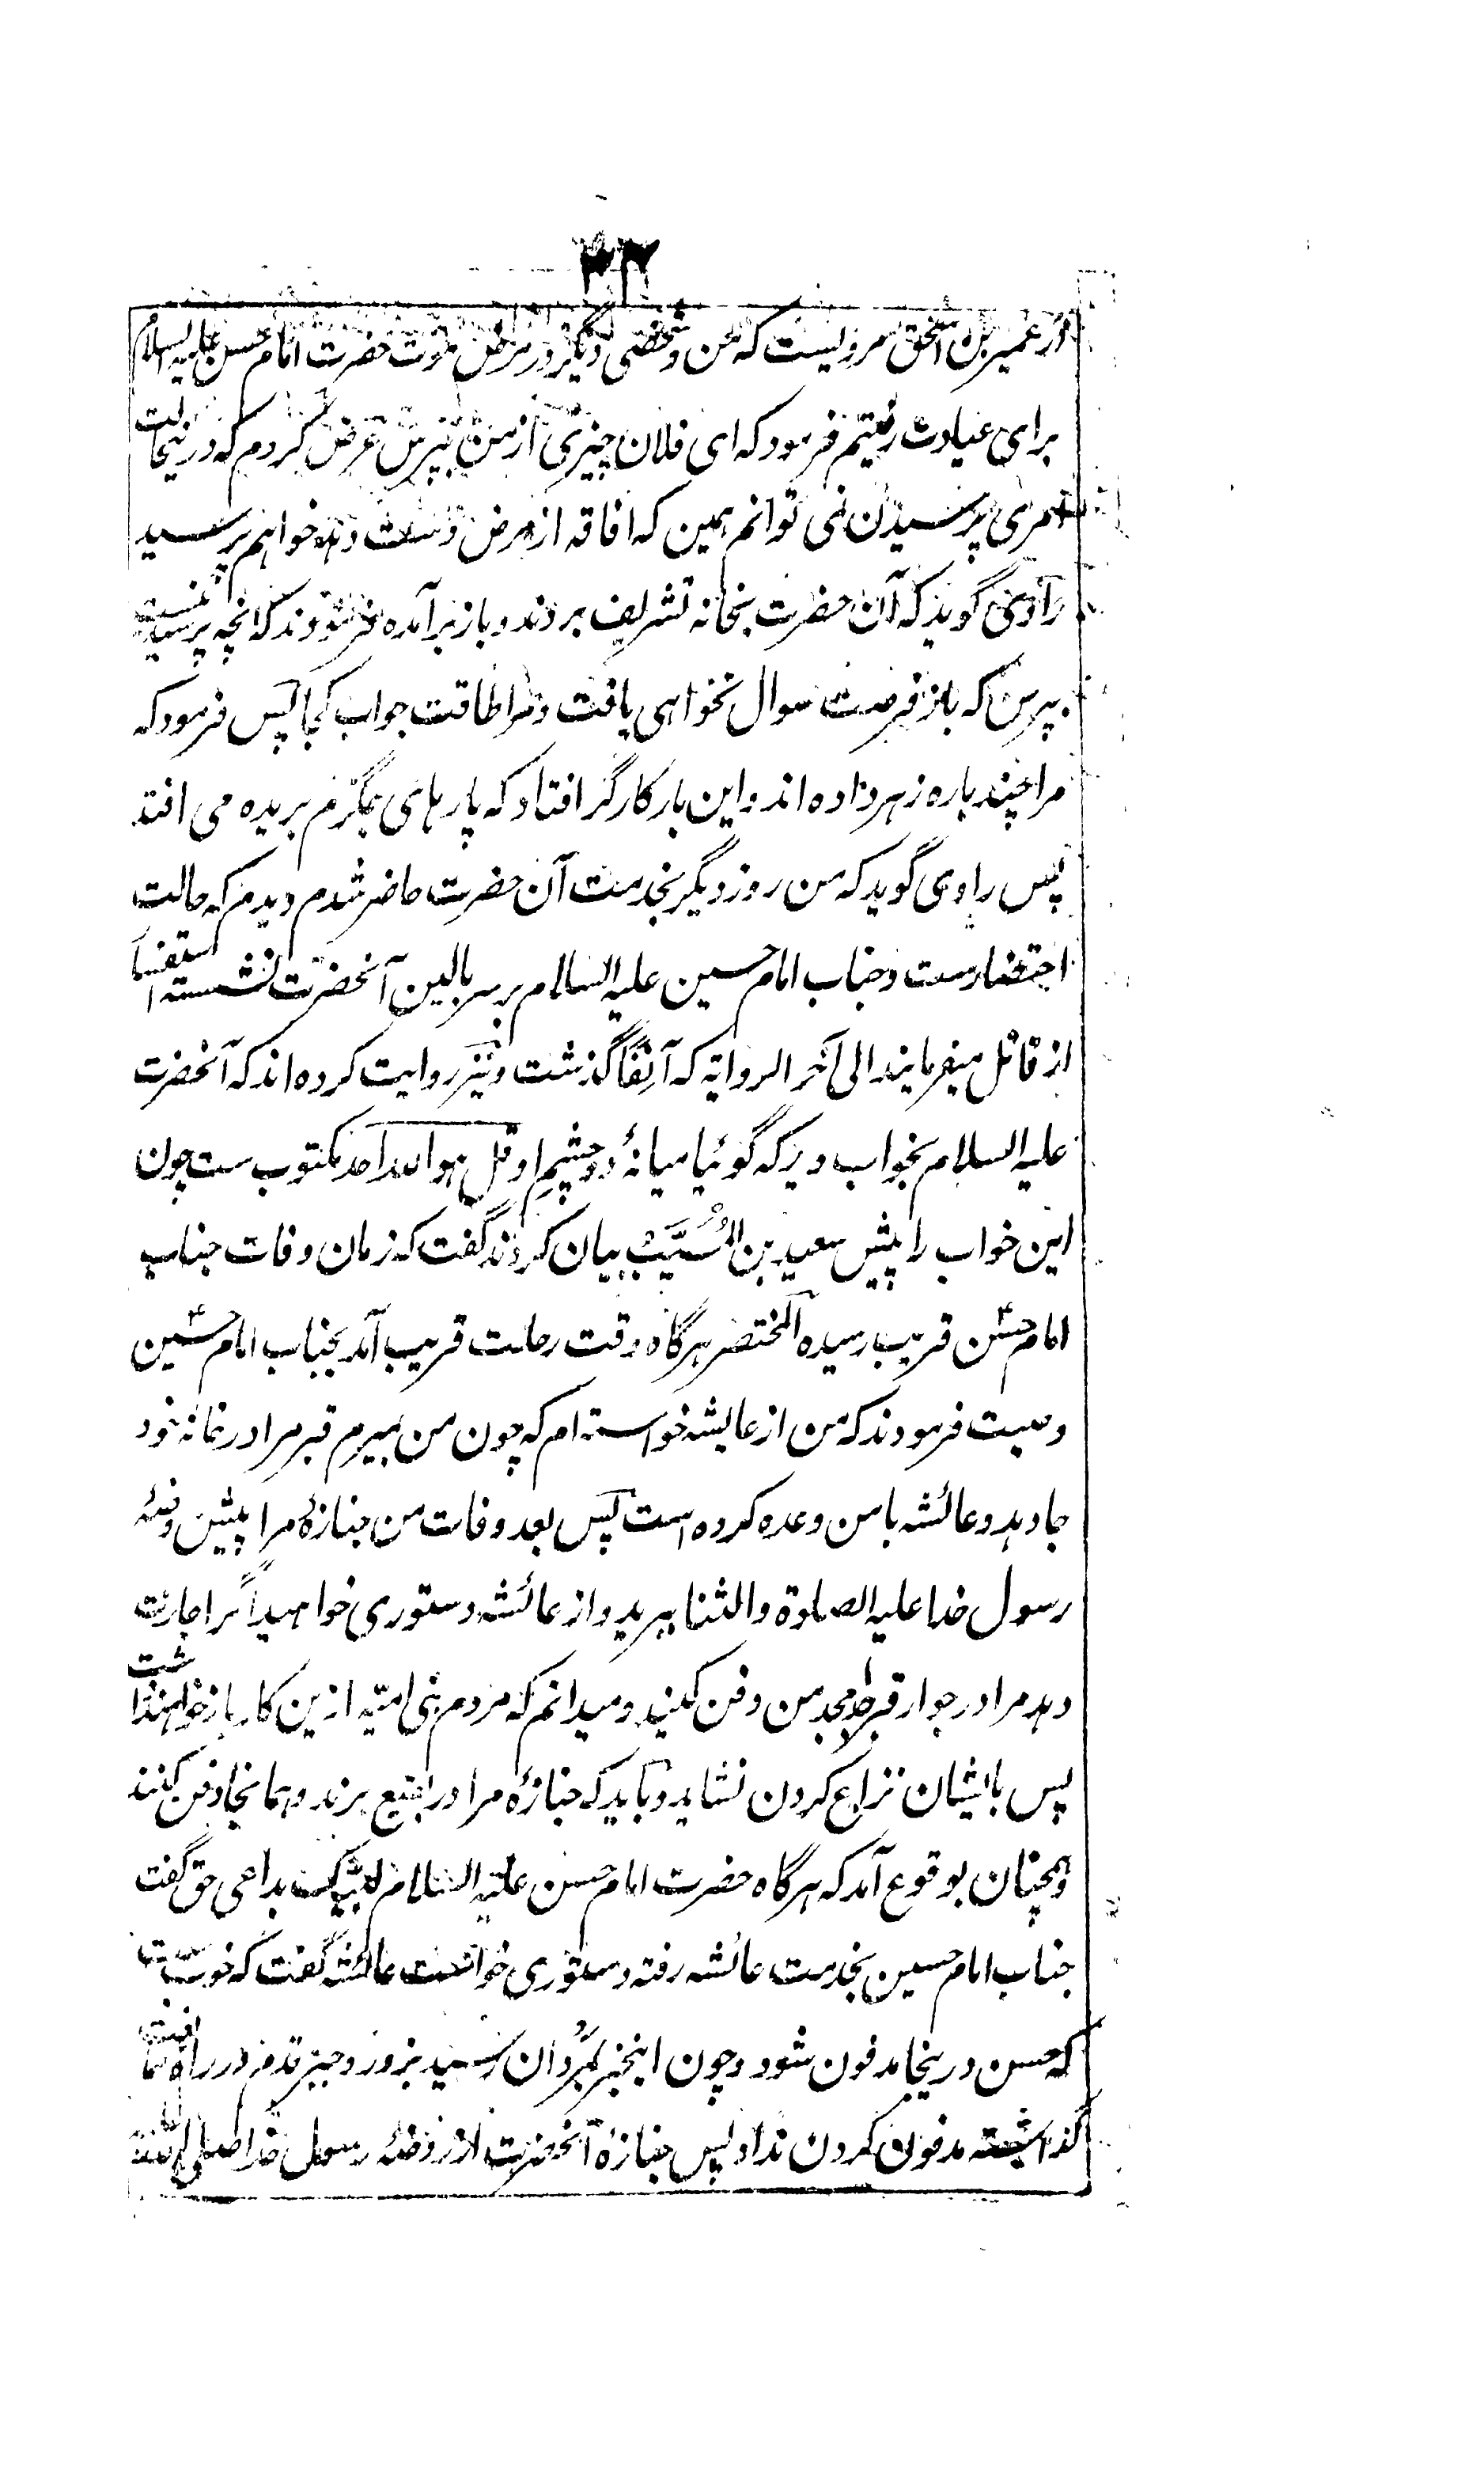 ۴۲
از عمیر بن اسحق مرویست که من و شخصی دیگر در مرض موت حضرت امام حسن علیه السلام
برای عیادت رفتیم فرمود که ای فلان چیزی از من بپرس عرض کردم که درینحالت
امری پرسیدن نمی توانم همین که افاقه از مرض دست دهد خواهم پرسید
راوی گوید که آن حضرت بخانه تشریف بردند و باز برآمده فرمودند که آنچه
بپرس که باز فرصت سوال نخواهی یافت و مرا طاقت جواب کجا پس فرمود که
مرا چند باره زهر داده اند و این بار کارگر افتاد که پارہای جگرم بریده می افتد
پس راوی گوید که من روز دیگر بخدمت آن حضرت حاضر شدم دیدم که حالت
احتضارست و جناب امام حسین علیه السلام بر سر بالین آنحضرت نشسته استفسار
از قاتل میفرمایند الی آخر الروایة که آنفاً گذشت و نیز روایت کرده اند که آنحضرت
علیه السلام بخواب دید که گوئیا میانهٔ دو چشم او قل هو الله احد مکتوب ست چون
این خواب را پیش سعید بن المُسَیَّب بیان کردند گفت که زمان وفات جناب
امام حسنؑ قریب رسیده المختصر هرگاه وقت رحلت قریب آمد بجناب امام حسینؑ
وصیت فرمودند که من از عایشه خواسته ام که چون من بمیرم قبر مرا در خانه خود
جا دهد و عائشه با من وعده کرده است پس بعد وفات من جنازهٔ مرا پیش روضهٔ
رسول خدا علیه الصلوة والثنا ببرید و از عائشه دستوری خواهید اگر اجازت
دهد مرا در جوار قبر جد امجد من دفن کنید و میدانم که مردم بنی امیّه ازین کار باز خواهند داشت
پس با ایشان نزاع کردن نشاید و باید که جنازهٔ مرا در بقیع برند و همانجا دفن کنند
و همچنان بوقوع آمد که هرگاه حضرت امام حسن علیه السلام لبیک بداعی حق گفت
جناب امام حسین بخدمت عائشه رفته دستوری خواست عائشه گفت که خوب ست
که حسن درینجا مدفون شود و چون اینخبر بمَروان رسید بزور و جبر قدم در راه
گذاشته مدفون کردن نداد پس جنازهٔ آنحضرت از روضهٔ رسول خدا صلی الله